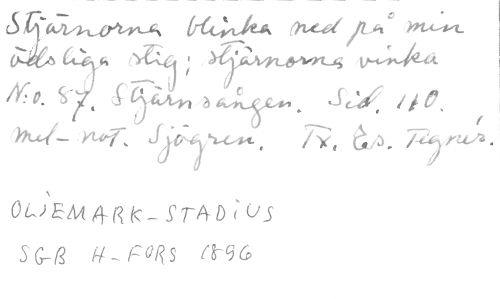 Stjärnorna blinka ned på min
ödsliga stig; stjärnorna vinka
N:o. 87. Stjärnsången. Sid. 110.
mel-not. Sjögren. Tx. Es. Tegnér.
OLJEMARK-STADIUS
SGB H-FORS 1896